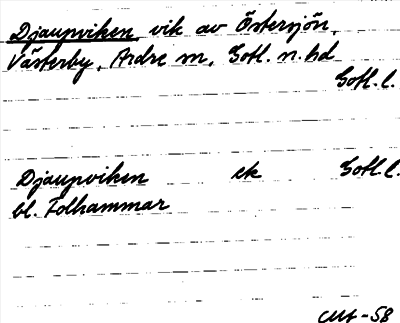 Djaupviken, vik av Östersjön,
Västerby, Ardre sn, Gotl. n. hd
Gotl. l.
Djaupviken ek Gotl. l.
bl. Folhammar
-58